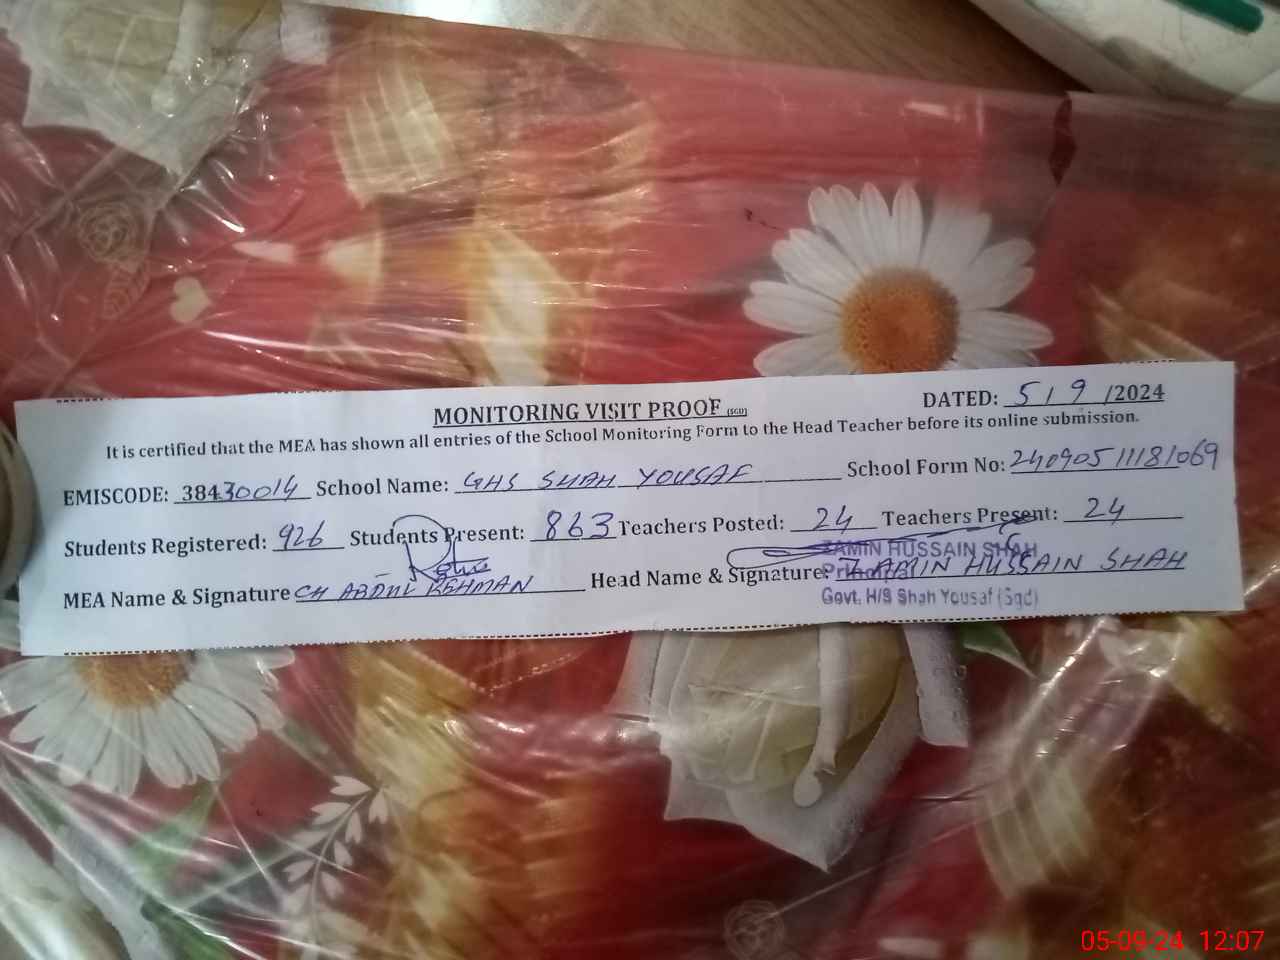 MONITORING VISIT PROOF (SGD)
DATED: 5/9/2024
It is certified that the MEA has shown all entries of the School Monitoring Form to the Head Teacher before its online submission.
EMISCODE: 38430014 School Name: GHS SHAH YOUSAF School Form No: 24090511181069
Students Registered: 926 Students Present: 863 Teachers Posted: 24 Teachers Present: 24
MEA Name & Signature CH ABDUL REHMAN Head Name & Signature: ZAMIN HUSSAIN SHAH
ZAMIN HUSSAIN SHAH
Principal
Govt. H/S Shah Yousaf (Sgd)
05-09-24 12:07